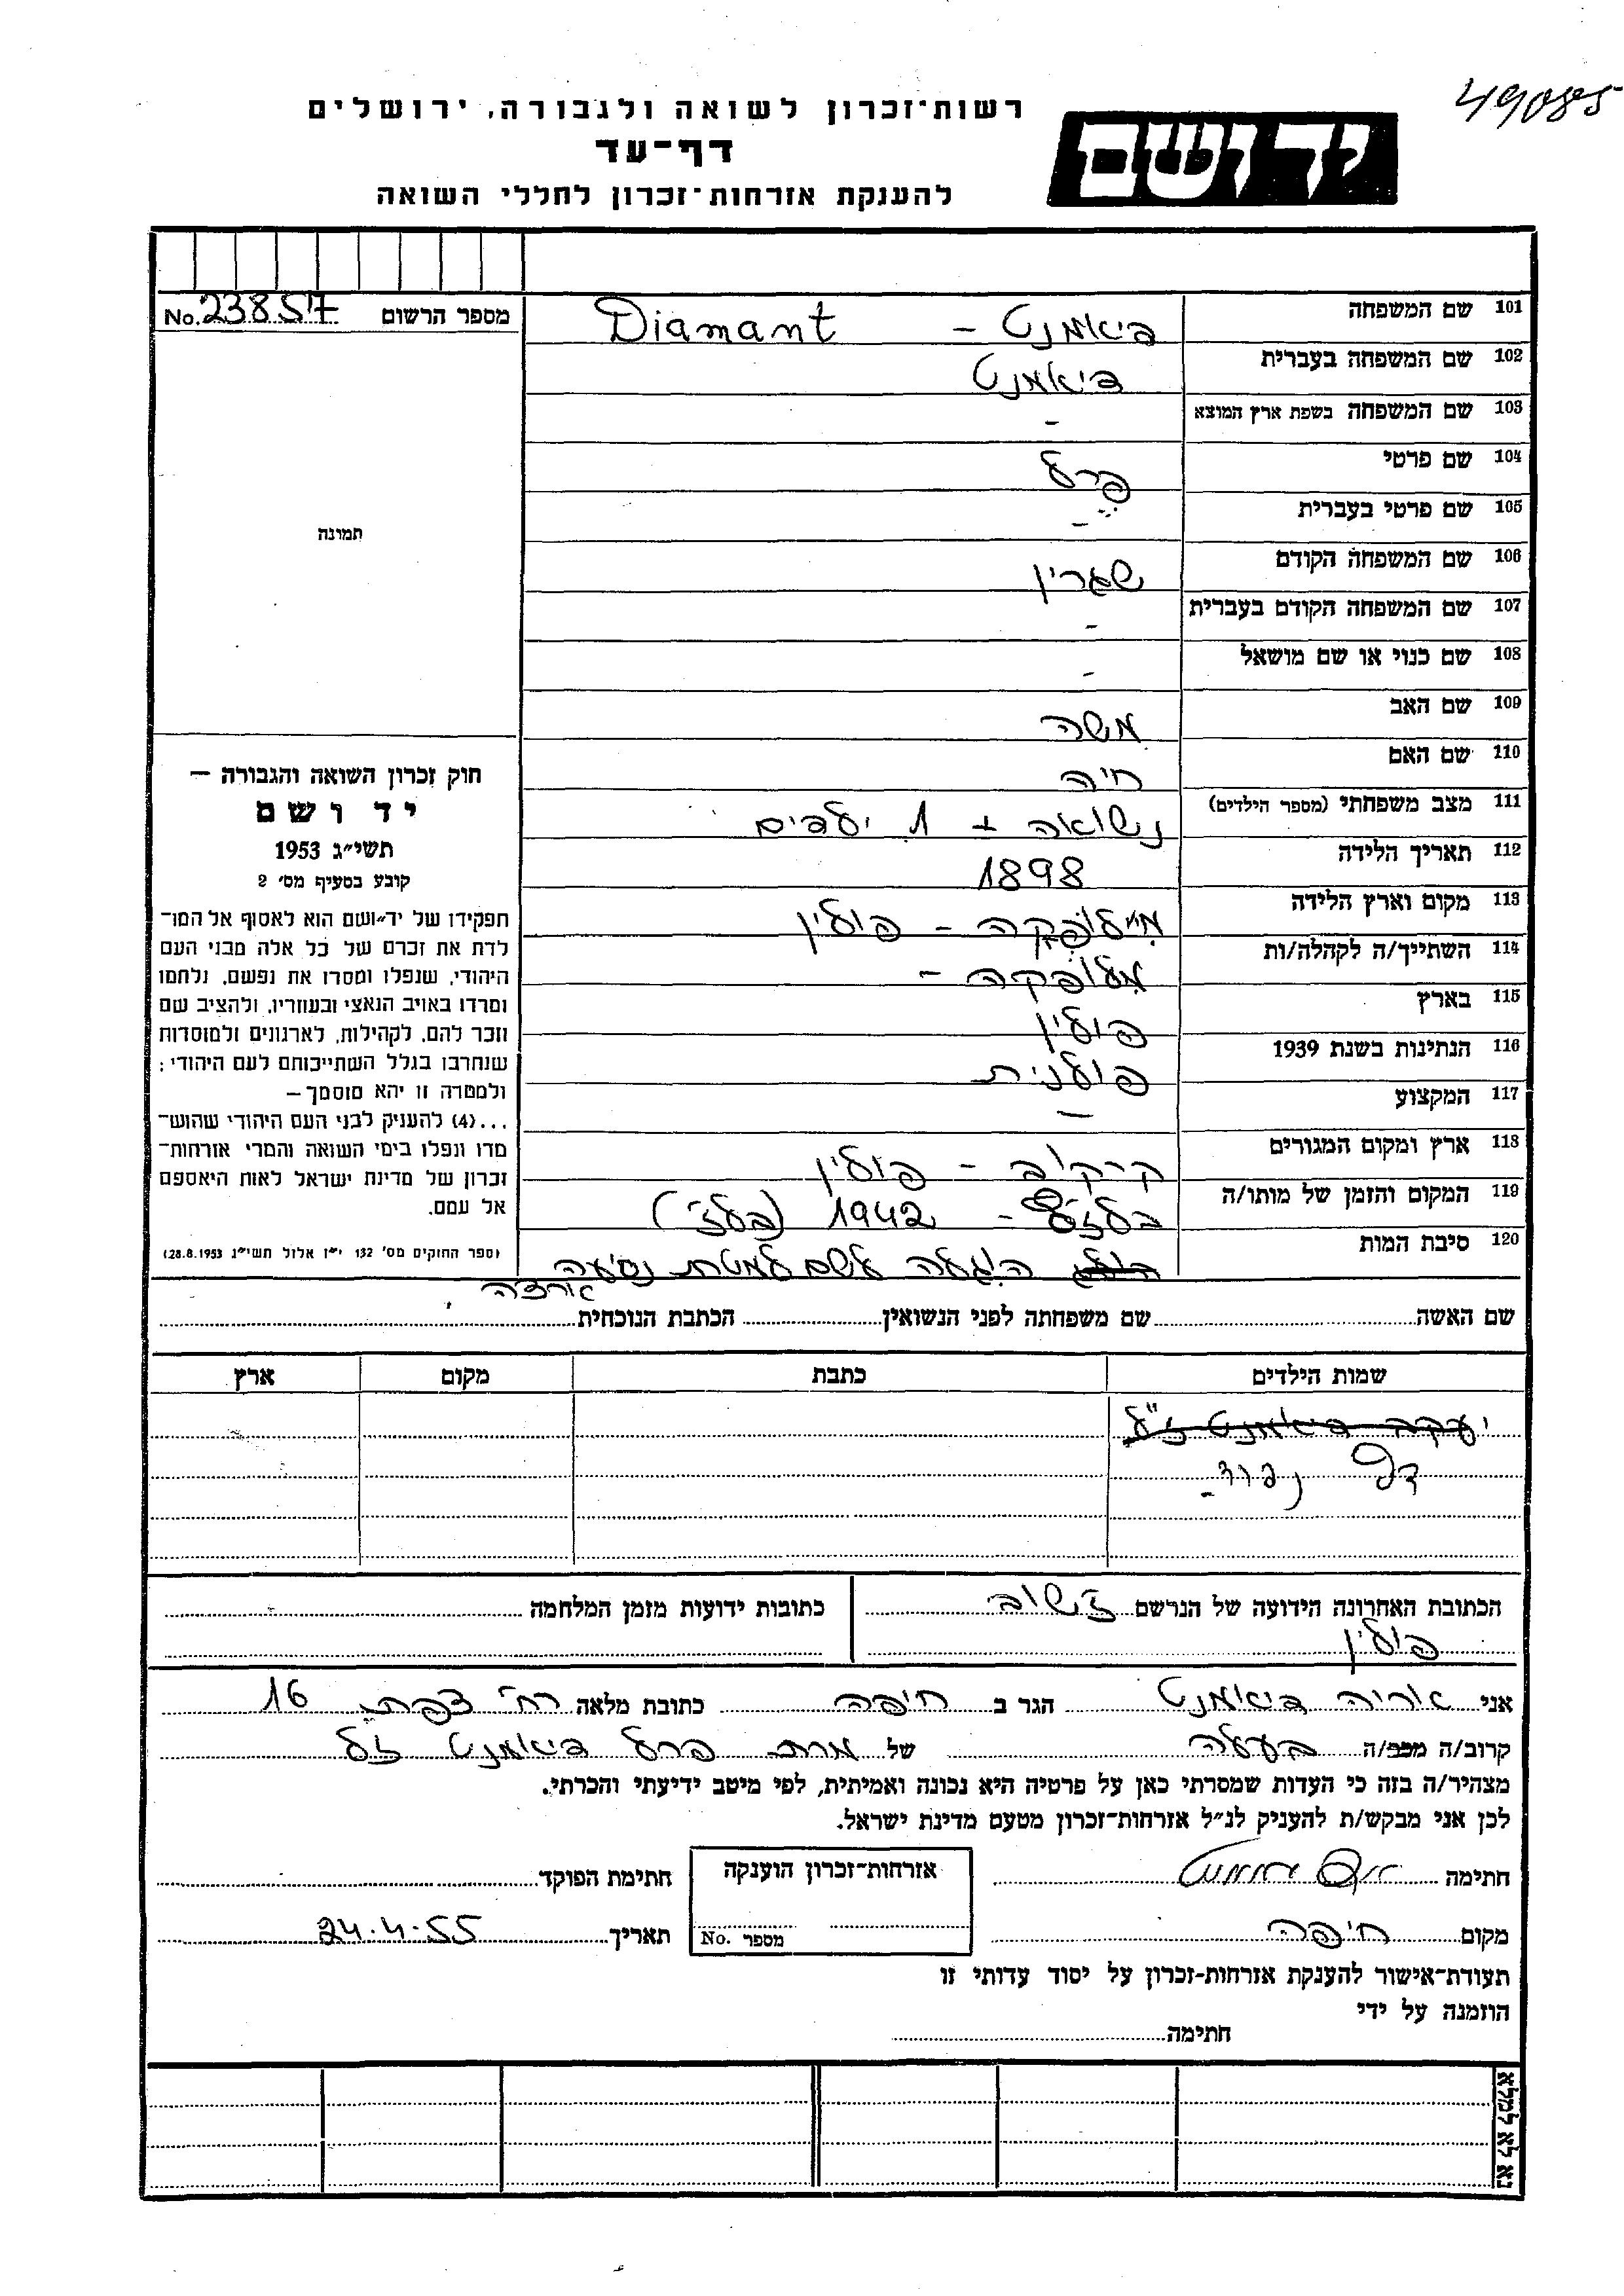 49085
רשות־זכרון לשואה ולגבורה, ירושלים
דף־עד
להענקת אזרחות־זכרון לחללי השואה
יד ושם
מספר הרשום No. 23857
תמונה
101 שם המשפחה דיאמנט – Diamant
102 שם המשפחה בעברית דיאמנט
103 שם המשפחה בשפת ארץ המוצא -
104 שם פרטי פרל
105 שם פרטי בעברית -
106 שם המשפחה הקודם
107 שם המשפחה הקודם בעברית -
108 שם כנוי או שם מושאל -
109 שם האב משה
110 שם האם חיה
111 מצב משפחתי (מספר הילדים) נשואה + 1 ילדים
112 תאריך הלידה 1898
113 מקום וארץ הלידה – פולין
114 השתייך/ה לקהלה/ות –
115 בארץ פולין
116 הנתינות בשנת 1939 פולנית
117 המקצוע –
118 ארץ ומקום המגורים קרקוב – פולין
119 המקום והזמן של מותו/ה – 1942
120 סיבת המות למטרת נסיעה
ארצה
חוק זכרון השואה והגבורה —
יד ושם
תשי״ג 1953
קובע בסעיף מס׳ 2
תפקידו של יד־ושם הוא לאסוף אל המו־
לדת את זכרם של כל אלה מבני העם
היהודי, שנפלו ומסרו את נפשם, נלחמו
ומרדו באויב הנאצי ובעוזריו, ולהציב שם
וזכר להם, לקהילות, לארגונים ולמוסדות
שנחרבו בגלל השתייכותם לעם היהודי;
ולמטרה זו יהא מוסמך—
...(4) להעניק לבני העם היהודי שהוש־
מדו ונפלו בימי השואה והמרי אזרחות־
זכרון של מדינת ישראל לאות היאספם
אל עמם.
(ספר החוקים מס׳ 132 י״ז אלול תשי״ג 28.8.1953)
שם האשה שם משפחתה לפני הנשואין הכתבת הנוכחית
שמות הילדים כתבת מקום ארץ
יעקב דיאמנט ז״ל
דף נפרד -
הכתובת האחרונה הידועה של הנרשם כתובות ידועות מזמן המלחמה
פולין
אני אריה דיאמנט הגר ב חיפה כתובת מלאה רח׳ צפת 16
קרוב/ה מכר/ה בעלה של מרת פרל דיאמנט ז״ל
מצהיר/ה בזה כי העדות שמסרתי כאן על פרטיה היא נכונה ואמיתית, לפי מיטב ידיעתי והכרתי.
לכן אני מבקש/ת להעניק לנ״ל אזרחות־זכרון מטעם מדינת ישראל.
חתימה אזרחות־זכרון הוענקה חתימת הפוקד
מקום חיפה מספר No. תאריך 24.4.55
תעודת־אישור להענקת אזרחות־זכרון על יסוד עדותי זו
הוזמנה על ידי
חתימה
נא לא למלא